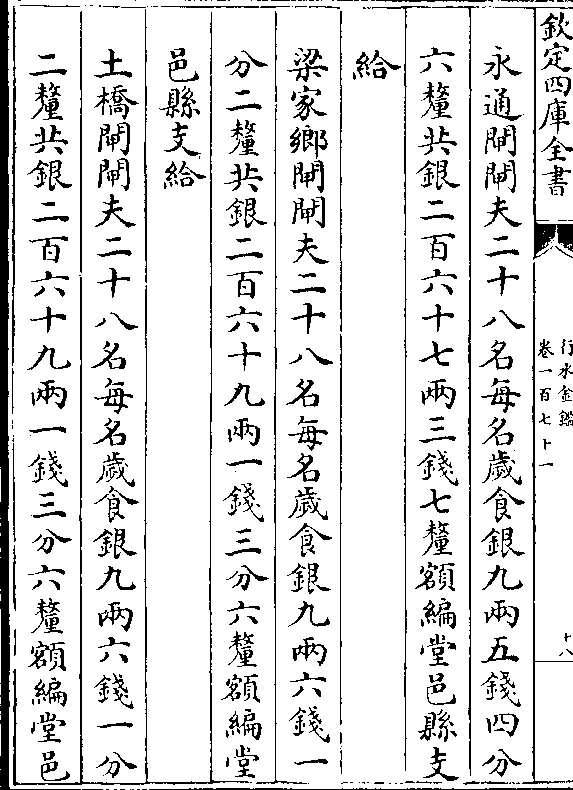 欽定四庫全書
行水金鑑
卷一百七十一
十八
永通閘閘夫二十八名每名歲食銀九兩五錢四分
六釐共銀二百六十七兩三錢七釐額編堂邑縣支
給
梁家鄉閘閘夫二十八名每名歲食銀九兩六錢一
分二釐共銀二百六十九兩一錢三分六釐額編堂
邑縣支給
土橋閘閘夫二十八名每名歲食銀九兩六錢一分
二釐共銀二百六十九兩一錢三分六釐額編堂邑